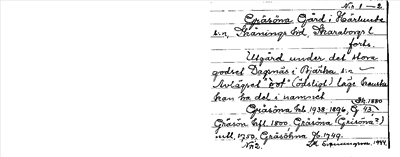 No. 1-2.
Gråsöna Gård i Härlunda
s:n, Skånings hd, Skaraborgs l
forts.
Utgård under det stora
godset Dagsnäs i Bjärka s:n
Avlägset "Öst" (ödsligt) läge kanske
kan ha del i namnet
1880
Gråsöna kb. 1938, 1896, G 43
Gråsön 1800, Gråsöna (Grisöna?)
mtl. 1750. Gråsöhna 1749.
No 2. 1944.